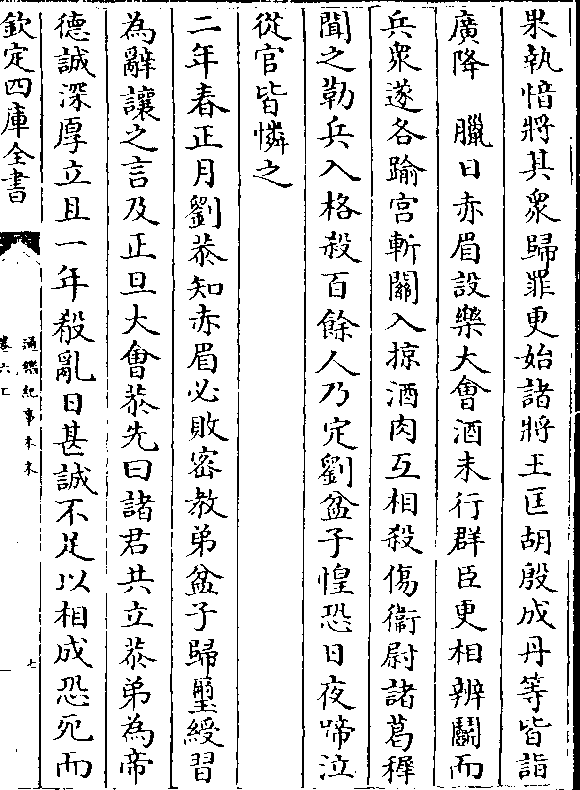 果執愔將其衆歸罪更始諸將王匡胡殷成丹等皆詣
廣降　臘日赤眉設樂大會酒未行群臣更相辨鬭而
兵衆遂各踰宮斬關入掠酒肉互相殺傷衞尉諸葛穉
聞之勒兵入格殺百餘人乃定劉盆子惶恐日夜啼泣
從官皆憐之
二年春正月劉恭知赤眉必敗密教弟盆子歸璽綬習
為辭讓之言及正旦大會恭先曰諸君共立恭弟為帝
德誠深厚立且一年殽亂日甚誠不足以相成恐死而
欽定四庫全書
通鑑紀事本末
卷六上
七